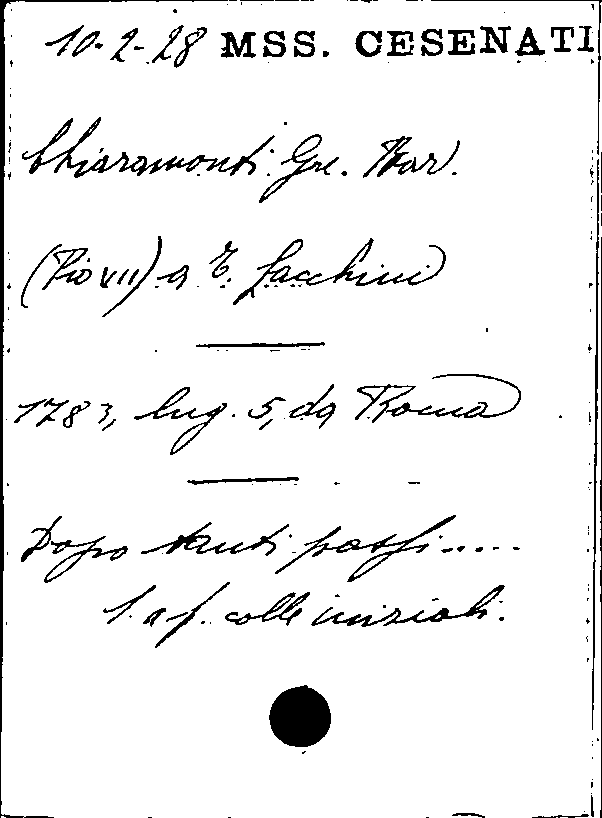 10-2-28 MSS. CESENATI
Chiaramonti Gre. Bar.
(Pio VII) a E. Facchini
1783, lug. 5, da Roma
Dopo tanti passi.....
l. a f. colle iniziali.